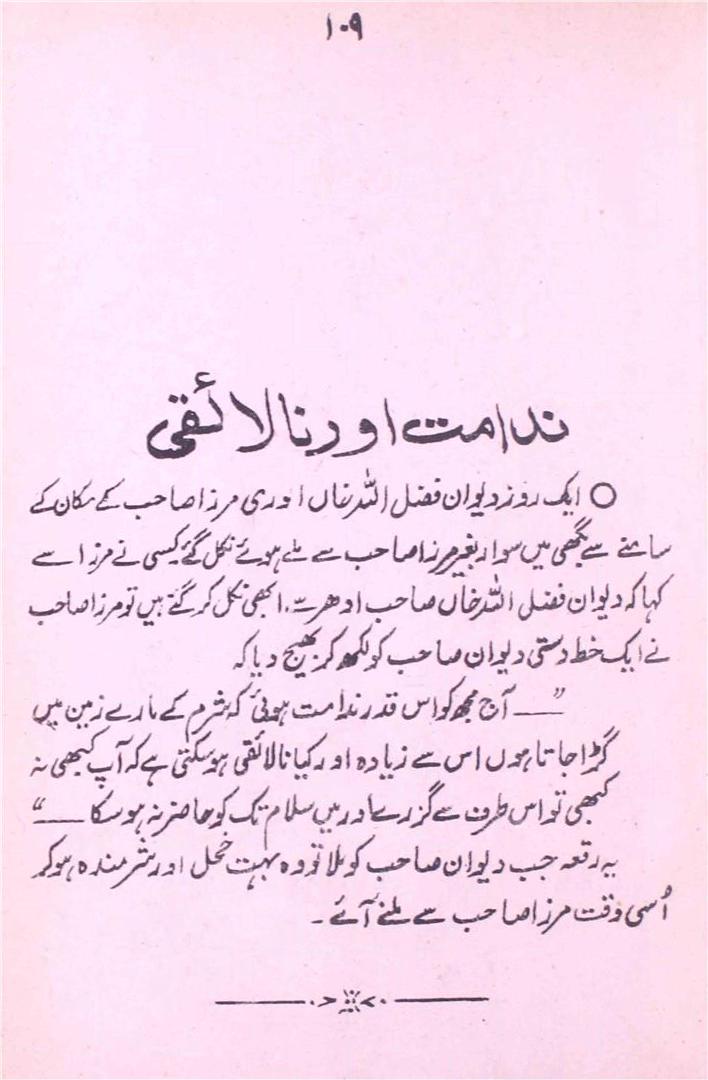 ۱۰۹
ندامت اور نالائقی
○ ایک روز دیوان فضل اللہ خاں انوری مرزا صاحب کے مکان کے
سامنے سے بگھی میں سوار بغیر مرزا صاحب سے ملے ہوئے نکل گئے کیسی نے مرزا سے
کہا کہ دیوان فضل اللہ خاں صاحب ادھر سے ابھی نکل کر گئے ہیں تو مرزا صاحب
نے ایک خط دستی دیوان صاحب کو لکھ کر بھیج دیا کہ
”—— آج مجھ کو اس قدر ندامت ہوئی کہ شرم کے مارے زمین میں
گڑا جاتا ہوں اس سے زیادہ اور کیا نالائقی ہو سکتی ہے کہ آپ کبھی نہ
کبھی تو اس طرف سے گزرے اور میں سلام تک کو حاضر نہ ہو سکا ——“
یہ رقعہ جب دیوان صاحب کو ملا تو وہ بہت خجل اور شرمندہ ہو کر
اُسی وقت مرزا صاحب سے ملنے آئے۔